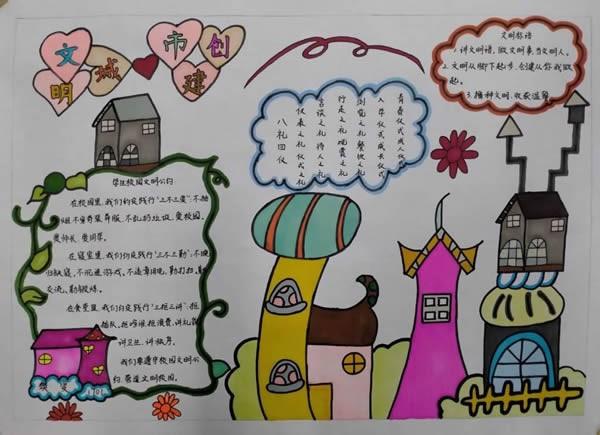 文明
城市
创建
文明标语
1.讲文明语,做文明事,当文明人。
2.文明从脚下起步,创建从你我做
起。
3.播种文明,收获温馨
八礼四仪
仪表之礼 仪式之礼
言谈之礼 待人之礼
行走之礼 观赏之礼
游览之礼 餐饮之礼
入学仪式 成长仪式
青春仪式 成人仪式
学生校园文明公约
在校园里,我们约定践行“三不三爱”:不
不穿奇装异服、不乱扔垃圾、爱校园、
爱师长、爱同学。
在寝室里,我们约定践行“三不三勤”:不晚
归就寝、不沉迷游戏、不违章用电、勤打扫、勤
交流、勤锻炼。
在食堂里,我们约定践行“三拒三讲”:拒
插队、拒吵嚷、拒浪费、讲礼貌
讲卫生、讲秩序。
我们要遵守校园文明公
约,营造文明校园。